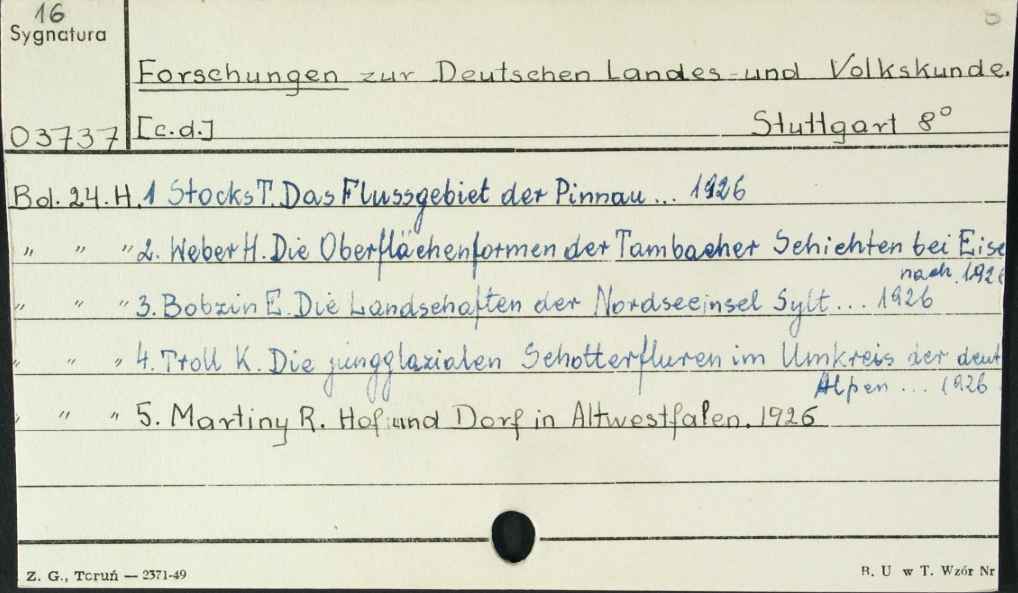 16
Sygnatura
Forschungen zur Deutschen Landes- und Volkskunde.
03737 [c.d.] Stuttgart 8°
Bd. 24. H. 1 Stocks T. Das Flussgebiet der Pinnau... 1926
" " " 2. Weber H. Die Oberflächenformen der Tambacher Schichten bei Eise
nach. 1926
" " " 3. Bobzin E. Die Landschaften der Nordseeinsel Sylt... 1926
" " " 4. Troll K. Die jungglazialen Schotterfluren im Umkreis der deut
Alpen ... 1926
" " " 5. Martiny R. Hof und Dorf in Altwestfalen. 1926
Z. G., Toruń — 2371-49
B. U w T. Wzór Nr